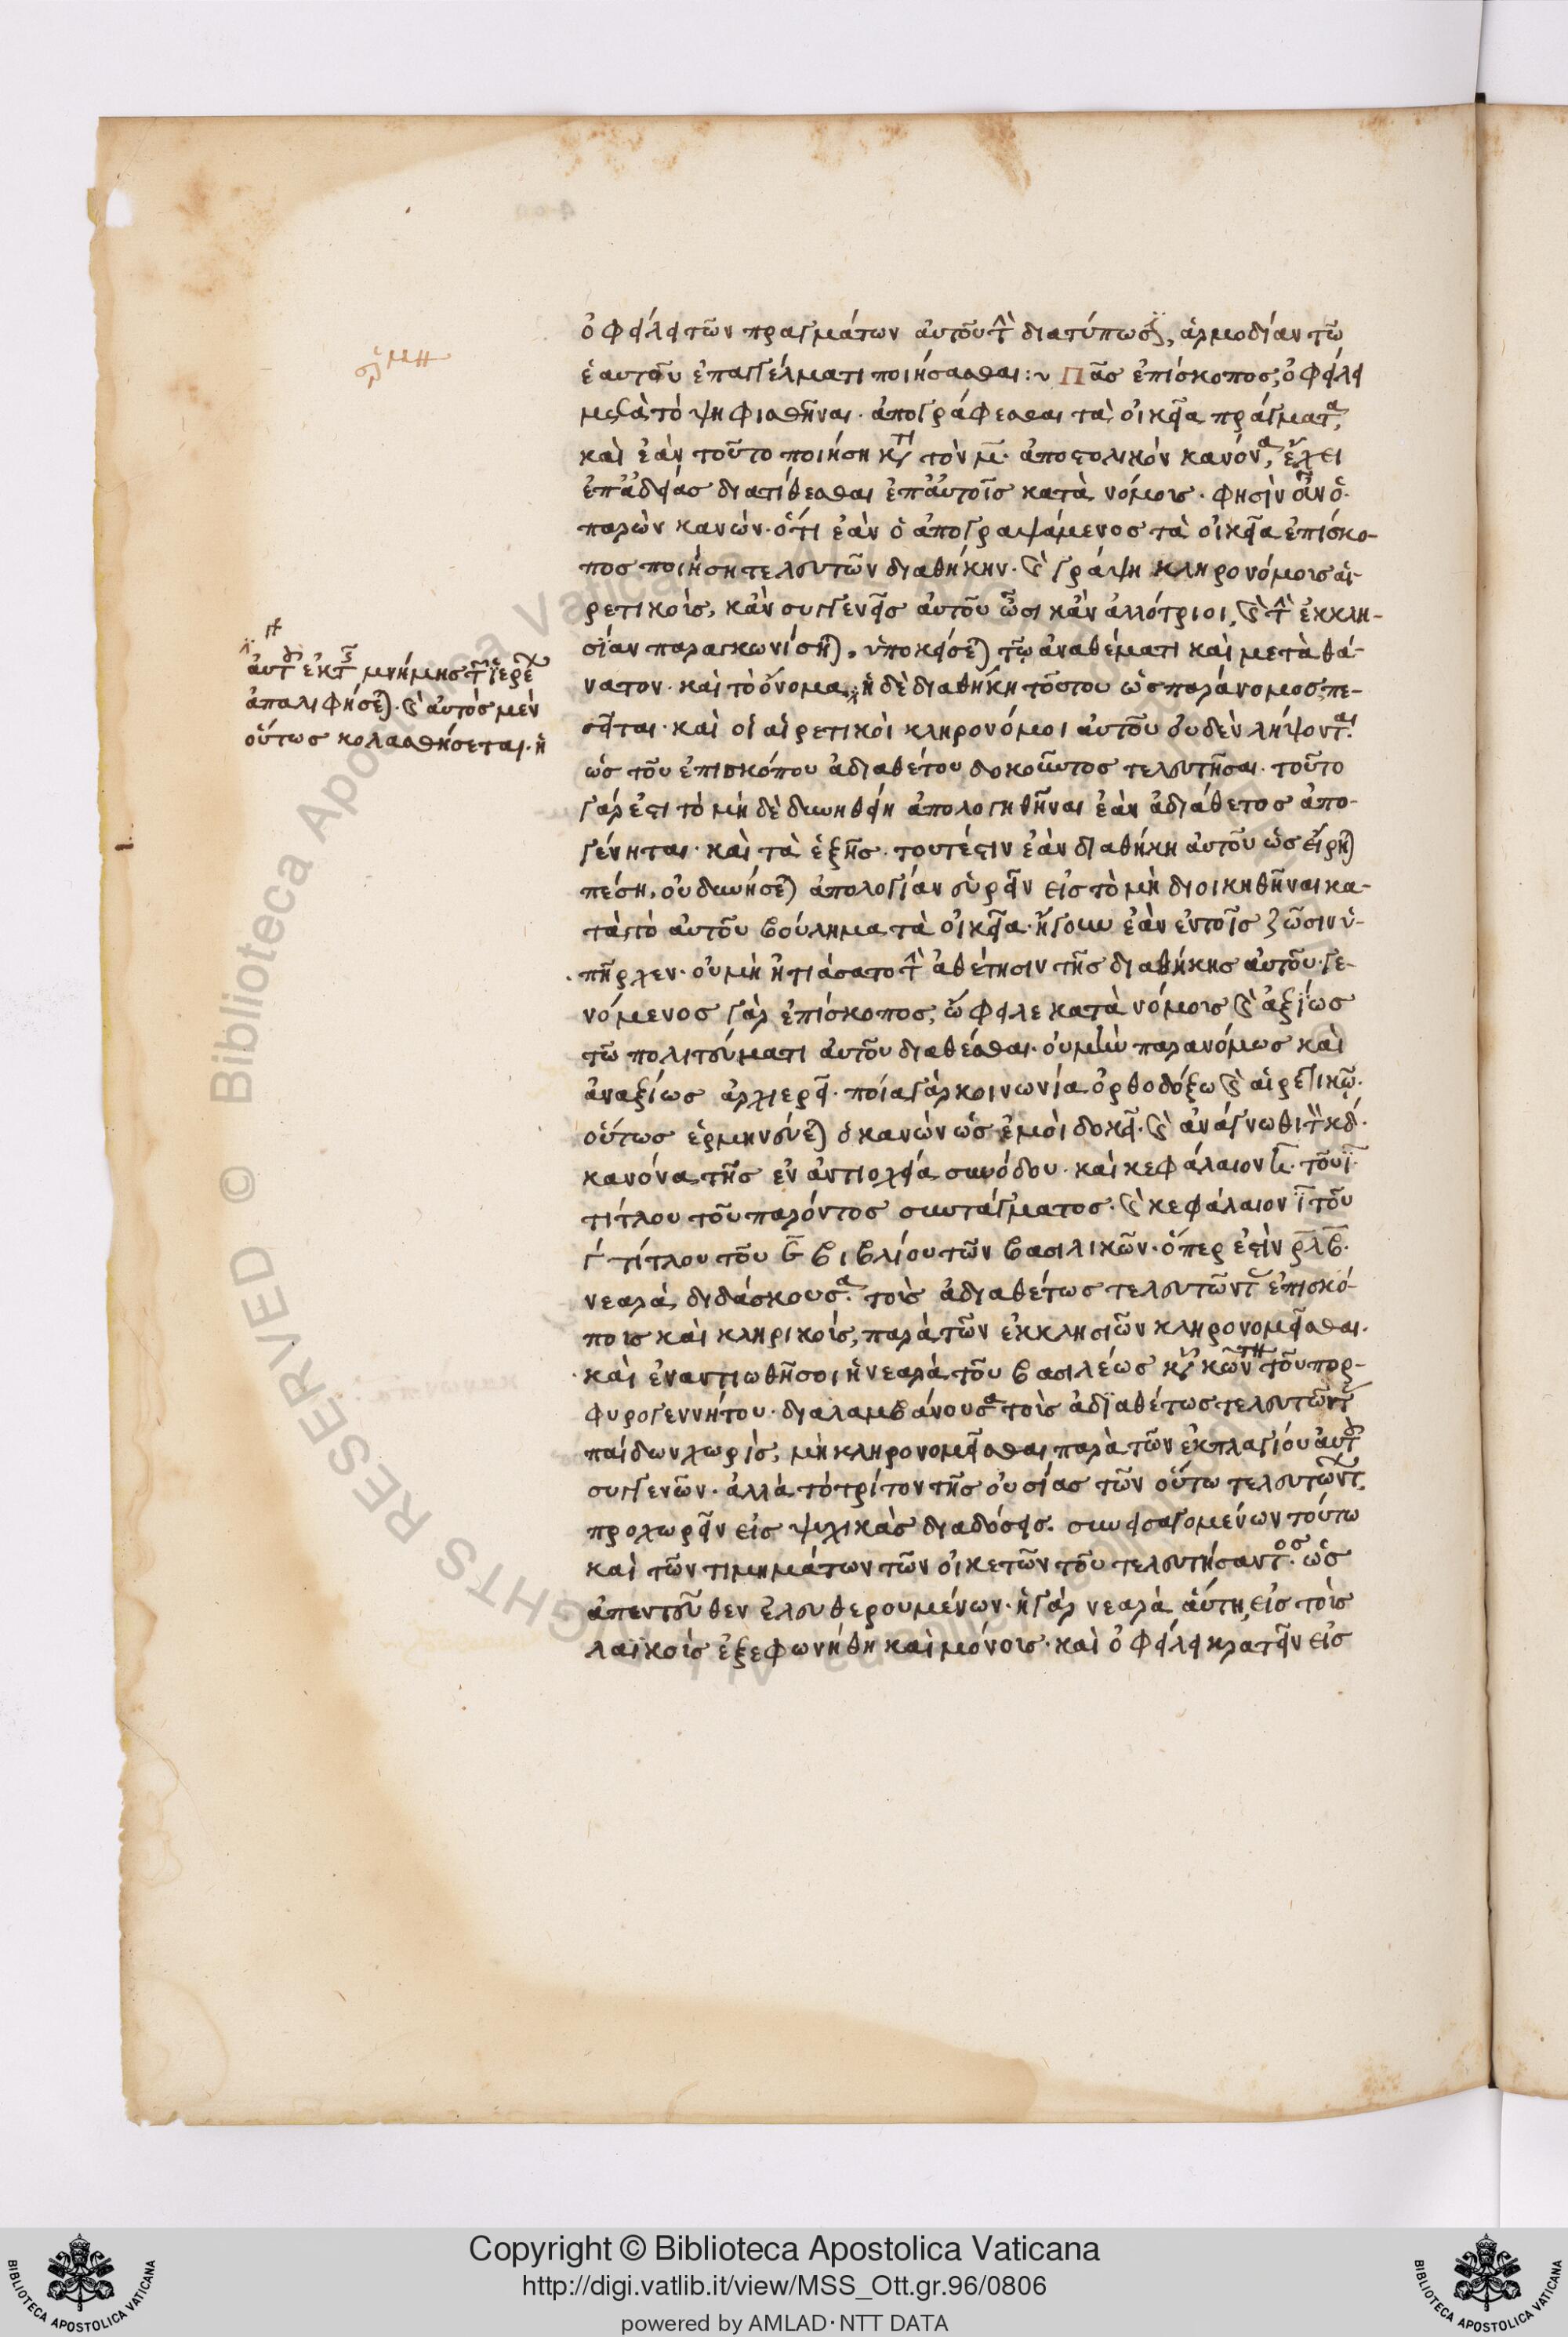 ὀφείλει τῶν πραγμάτων αὐτοῦ τὴν διατύπωσιν, ἁρμοδίαν τῶ
ἑαυτοῦ ἐπαγγέλματι ποιήσασθαι:~ Πᾶς ἐπίσκοπος, ὀφείλει
μετὰ τὸ ψηφισθῆναι· ἀπογράφεσθαι τὰ οἰκεῖα πράγματα,
καὶ ἐὰν τοῦτο ποιήση κατὰ τὸν μ̅· ἀποστολικὸν κανόνα, ἔχει
ἐπ' ἀδείας διατίθεσθαι ἐπ' αὐτοῖς κατὰ νόμους· φησὶν οὖν ὁ
παρὼν κανών· ὅτι ἐὰν ὁ ἀπογραψάμενος τὰ οἰκεῖα ἐπίσκο-
πος ποιήση τελευτῶν διαθήκην· καὶ γράψη κληρονόμους αἱ-
ρετικοὺς, κἂν συγγενεῖς αὐτοῦ ὦσι κἂν ἀλλότριοι, καὶ τὴν ἐκκλη-
σίαν παραγκωνίσηται, ὑποκείσεται τῶ ἀναθέματι καὶ μετὰ θά-
νατον· καὶ τὸ ὄνομα ἡ δὲ διαθήκη τούτου ὡς παράνομος, πε-
σεῖται· καὶ οἱ αἱρετικοὶ κληρονόμοι αὐτοῦ οὐδὲν λήψονται·
ὡς τοῦ ἐπισκόπου ἀδιαθέτου δοκοῦντος τελευτῆσαι· τοῦτο
γάρ ἐστι τὸ μὴ δὲ δυνηθείη ἀπολογηθῆναι ἐὰν ἀδιάθετος ἀπο-
γένηται· καὶ τὰ ἑξῆς· τουτέστιν ἐὰν διαθήκη αὐτοῦ ὡς εἴρηται
πέση, οὐ δυνήσεται ἀπολογίαν εὑρεῖν εἰς τὸ μὴ διοικηθῆναι κα-
τὰ τὸ αὐτοῦ βούλημα τὰ οἰκεῖα· ἤγουν ἐὰν ἐν τοῖς ζῶσιν ὑ-
πῆρχεν· οὐ μὴ ἠτιάσατο τὴν ἀθέτησιν τῆς διαθήκης αὐτοῦ· γε-
νόμενος γὰρ ἐπίσκοπος, ὤφειλε κατὰ νόμους καὶ ἀξίως
τῶ πολιτεύματι αὐτοῦ διαθέσθαι· οὐ μὴν παρανόμως καὶ
ἀναξίως ἀρχιερεῖ· ποία γὰρ κοινωνία ὀρθοδόξω καὶ αἱρετικῶ·
οὕτως ἑρμηνεύεται ὁ κανὼν ὡς ἐμοὶ δοκεῖ· καὶ ἀνάγνωθι τὸν κδ·
κανόνα τῆς ἐν ἀντιοχεία συνόδου· καὶ κεφάλαιον τοῦ ι̅·
τίτλου τοῦ παρόντος συντάγματος· καὶ κεφάλαιον ι̅ τοῦ
γ· τίτλου τοῦ βιβλίου τῶν βασιλικῶν· ὅπερ ἐστὶν ρ̅λ̅β̅·
νεαρὰ, διδάσκουσα· τοὺς ἀδιαθέτως τελευτῶντας ἐπισκό-
πους καὶ κληρικοὺς, παρὰ τῶν ἐκκλησιῶν κληρονομεῖσθαι·
καὶ ἐναντιωθῆ σοι ἡ νεαρὰ τοῦ βασιλέως κυροῦ κωνσταντίνου τοῦ πορ-
φυρογεννήτου· διαλαμβάνουσα τοὺς ἀδιαθέτως τελευτῶντας
παίδων χωρὶς, μὴ κληρονομεῖσθαι παρὰ τῶν ἐκ πλαγίου αὐτοῦ
συγγενῶν· ἀλλὰ τὸ τρίτον τῆς οὐσίας τῶν οὕτω τελευτώντων
προχωρεῖν εἰς ψυχικὰς διαδόσεις· συνεισαγομένων τούτω
καὶ τῶν τιμημάτων τῶν οἰκετῶν τοῦ τελευτήσαντος· ὡς
ἀπεντεῦθεν ἐλευθερουμένων· ἡ γὰρ νεαρὰ αὕτη, εἰς τοὺς
λαϊκοὺς ἐξεφωνήθη καὶ μόνους· καὶ ὀφείλει κρατεῖν εἰς
αὐτοῦ ἐκ τῆς μνήμης τῶν ἱερέων
ἀπαλιφήσεται· καὶ αὐτὸς μὲν
οὕτως κολασθήσεται· ἡ
Copyright © Biblioteca Apostolica Vaticana
http://digi.vatlib.it/view/MSS_Ott.gr.96/0806
powered by AMLAD·NTT DATA